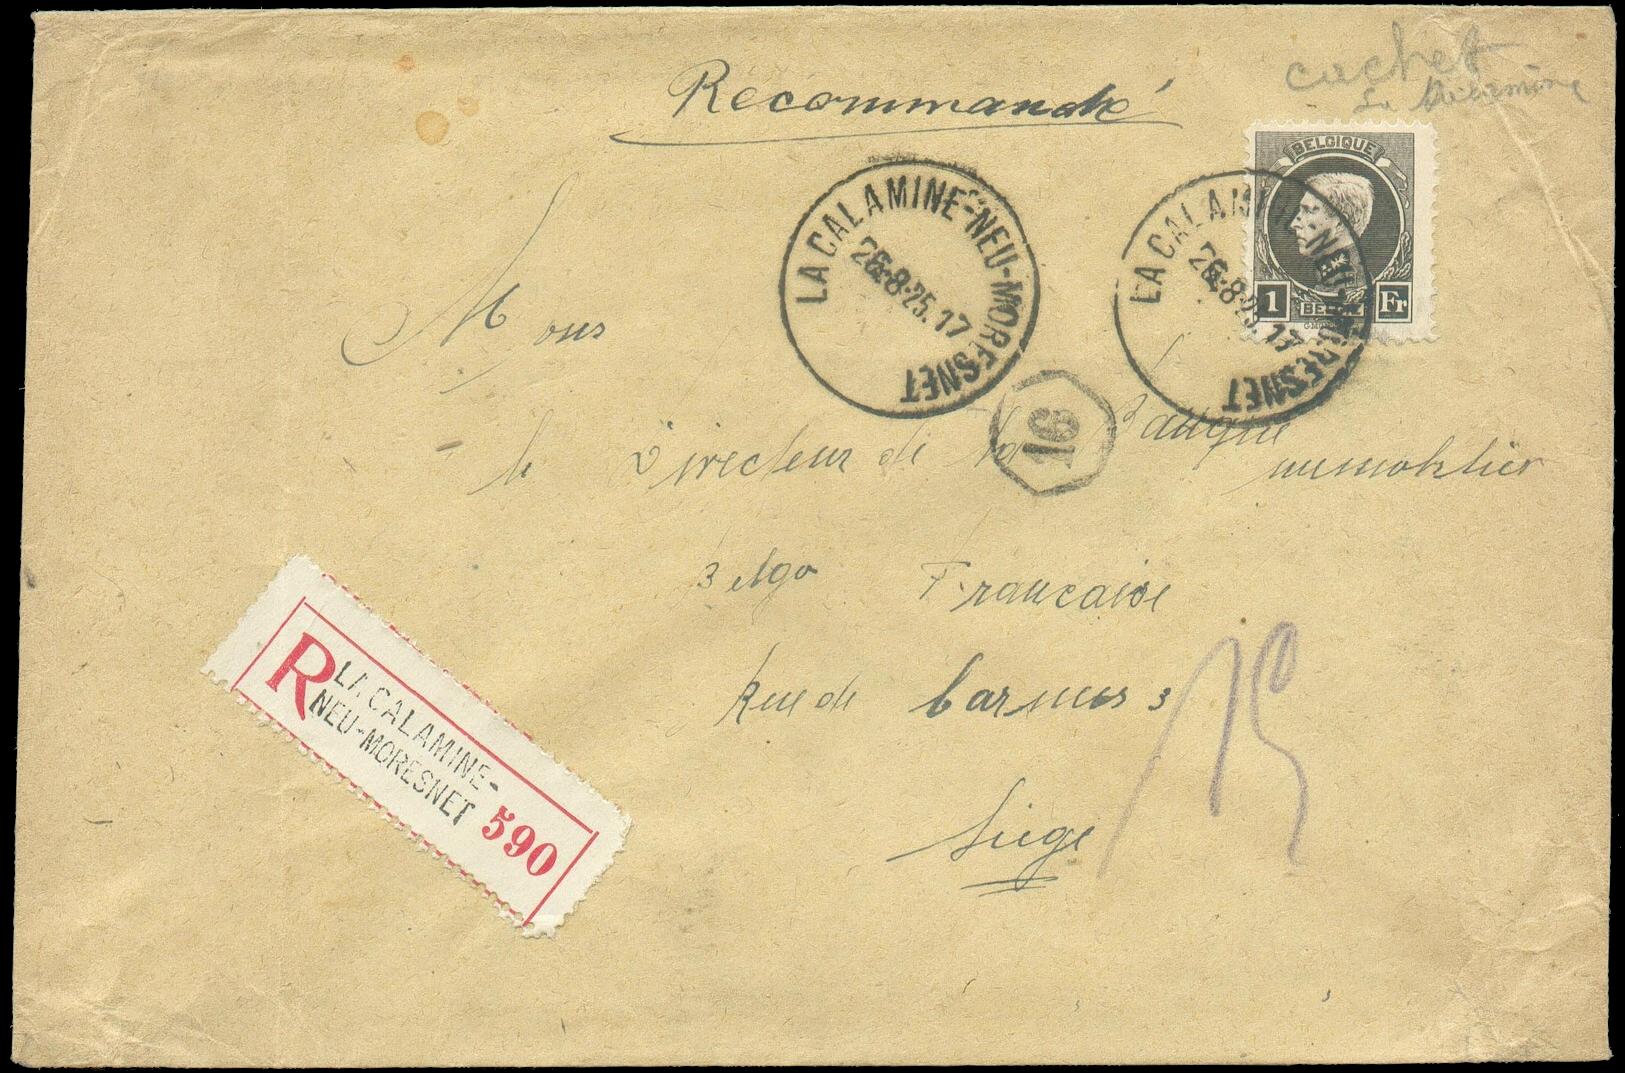 cachet
La Calamine
Recommandé
BELGIQUE
1 BELGIË Fr
LA CALAMINE-NEU-MORESNET
26-8-25.17
LA CALAMINE-NEU-MORESNET
26-8-25.17
16
Mons
le Directeur de la Banque
Belgo Francaise
Rue de 3
Liège
R LA CALAMINE-
NEU-MORESNET 590